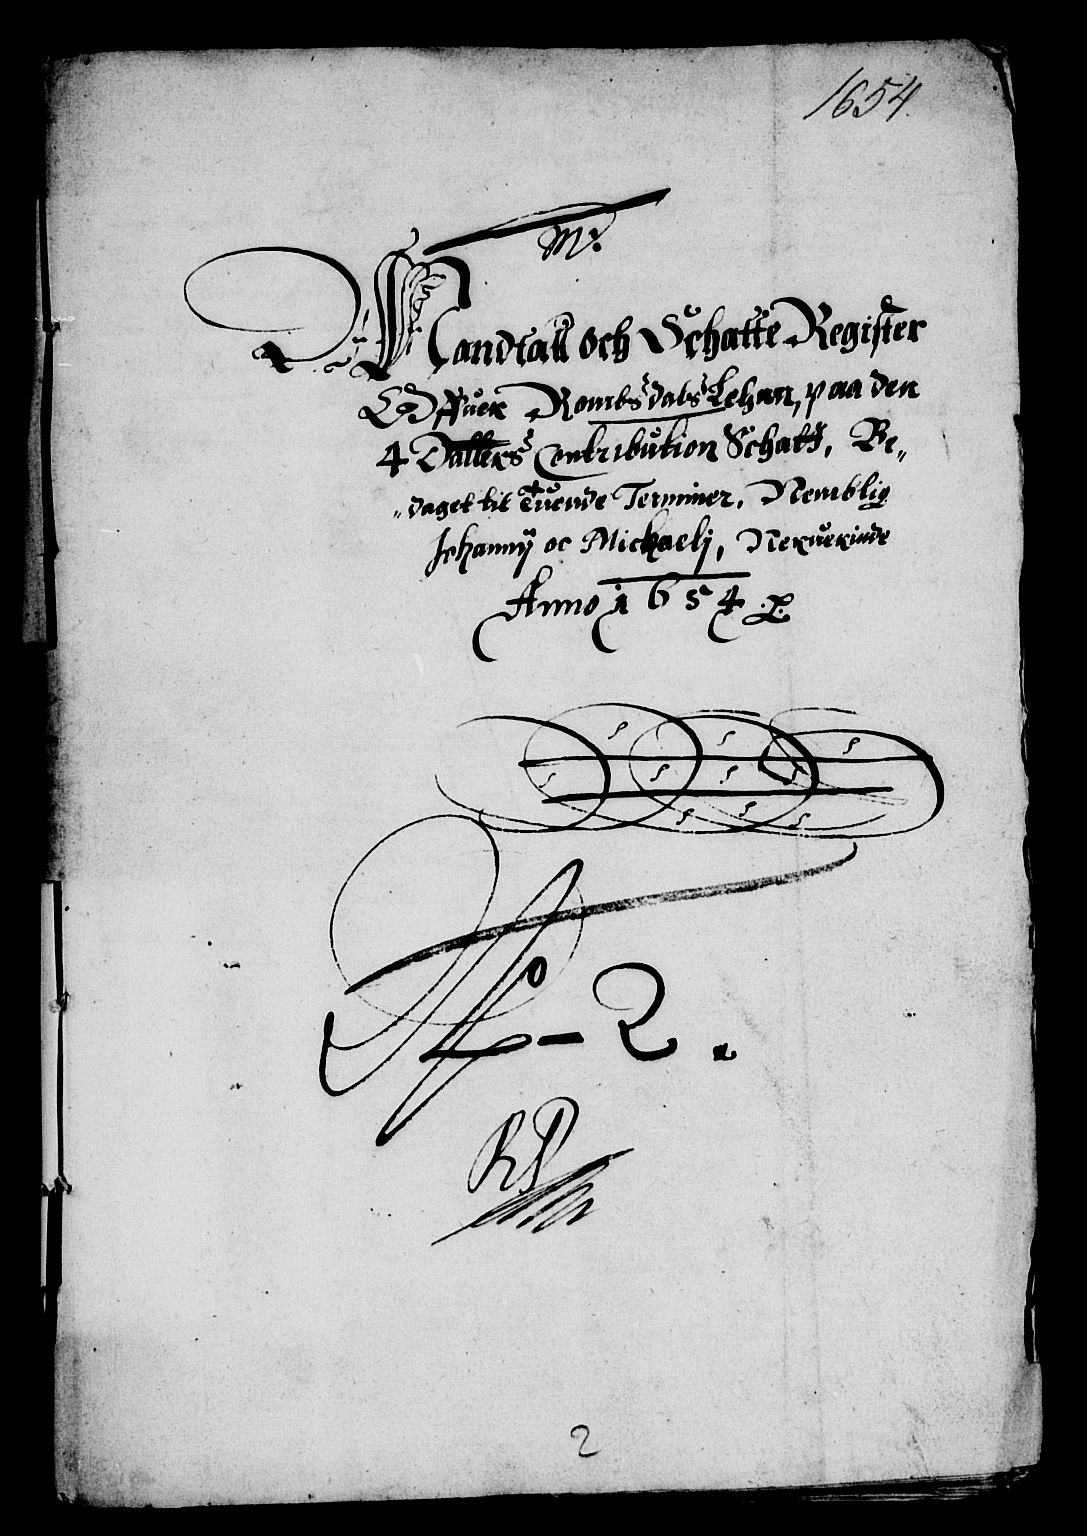 1654
M:
Mandtall och Schatte Register
Offuer Rombsdals Lehen, paa den
4 Dallers Contribution Schatt, Be„
„daget til Tuende Terminer, Nemblig
Johannij oc Michaelj, Nerverinde
Anno 1654
No - 2.
2